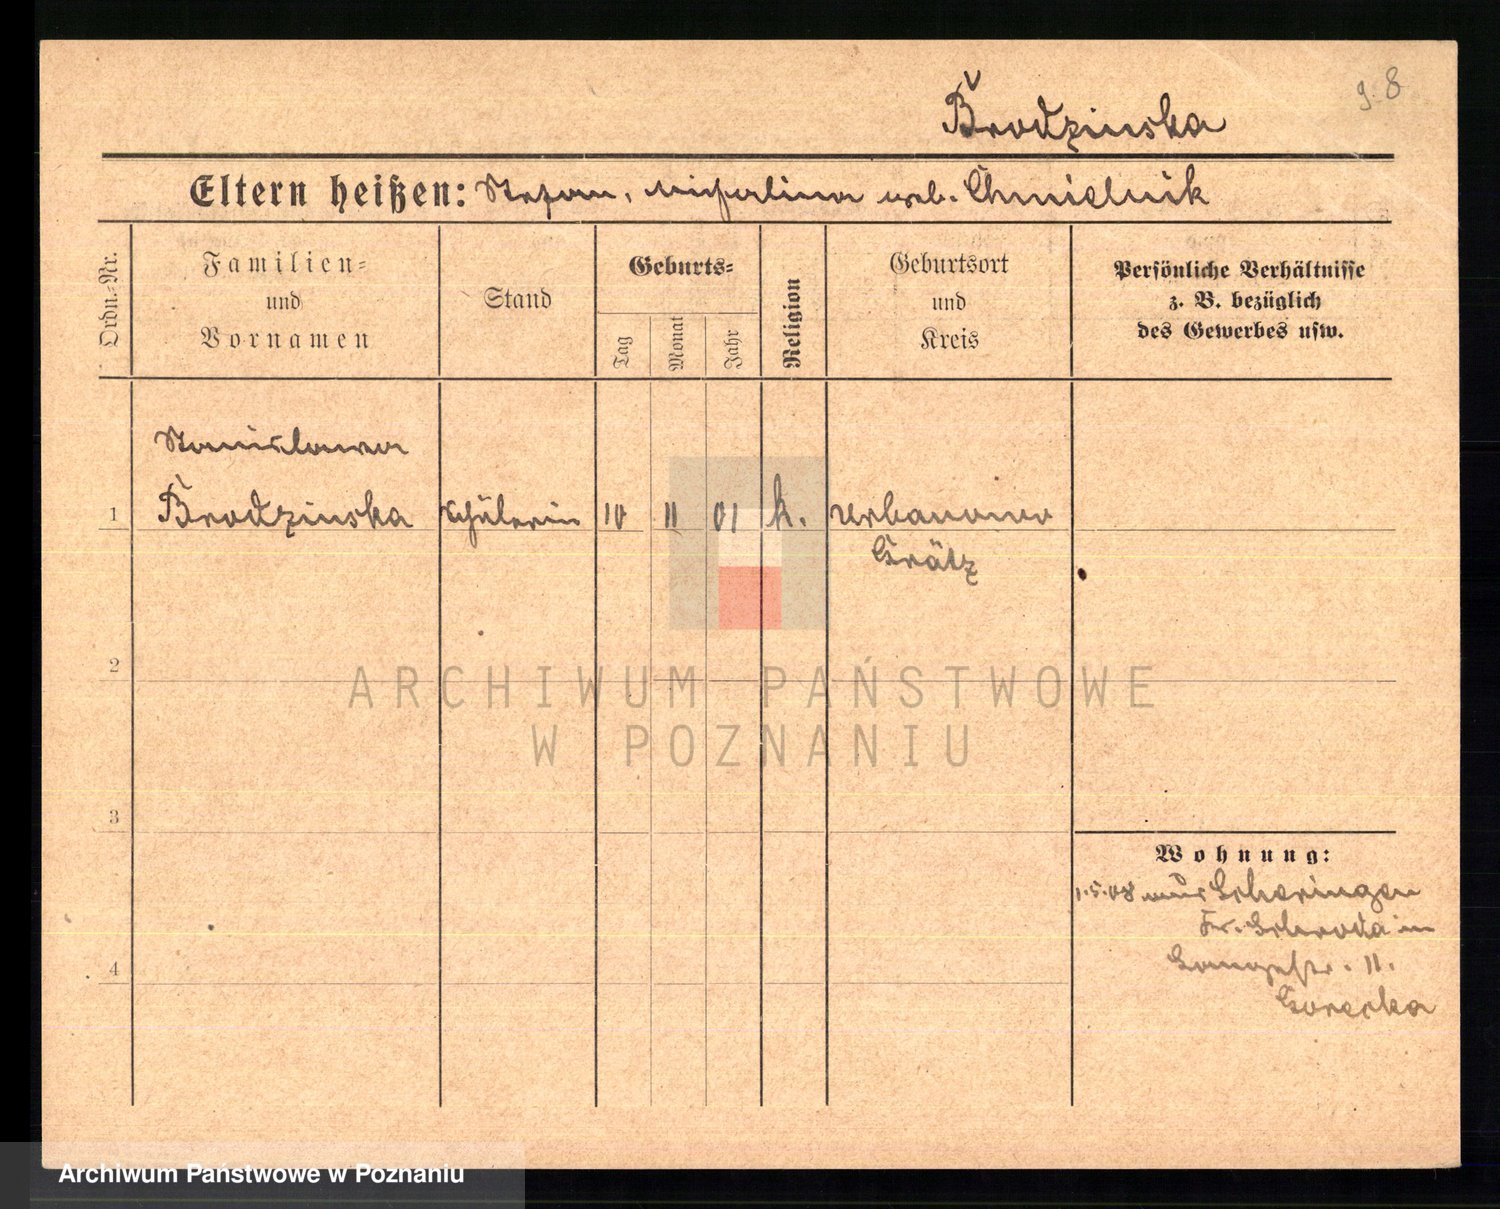 9.8
Brodzinska
Eltern heißen: Stefan, Michalina geb. Chmielnik
Ordn.=Nr.
Familien=
und
Vornamen
Stand
Geburts=
Tag
Monat
Jahr
Religion
Geburtsort
und
Kreis
Persönliche Verhältnisse
z. B. bezüglich
des Gewerbes usw.
Stanislawa
1 Brodzinska Schülerin 10 11 01 k. Urbanowo
Grätz
2
ARCHIWUM PAŃSTWOWE
W POZNANIU
3
Wohnung:
1.5.08 aus
Kr. Schroda in
4
11.
Gorecka
Archiwum Państwowe w Poznaniu